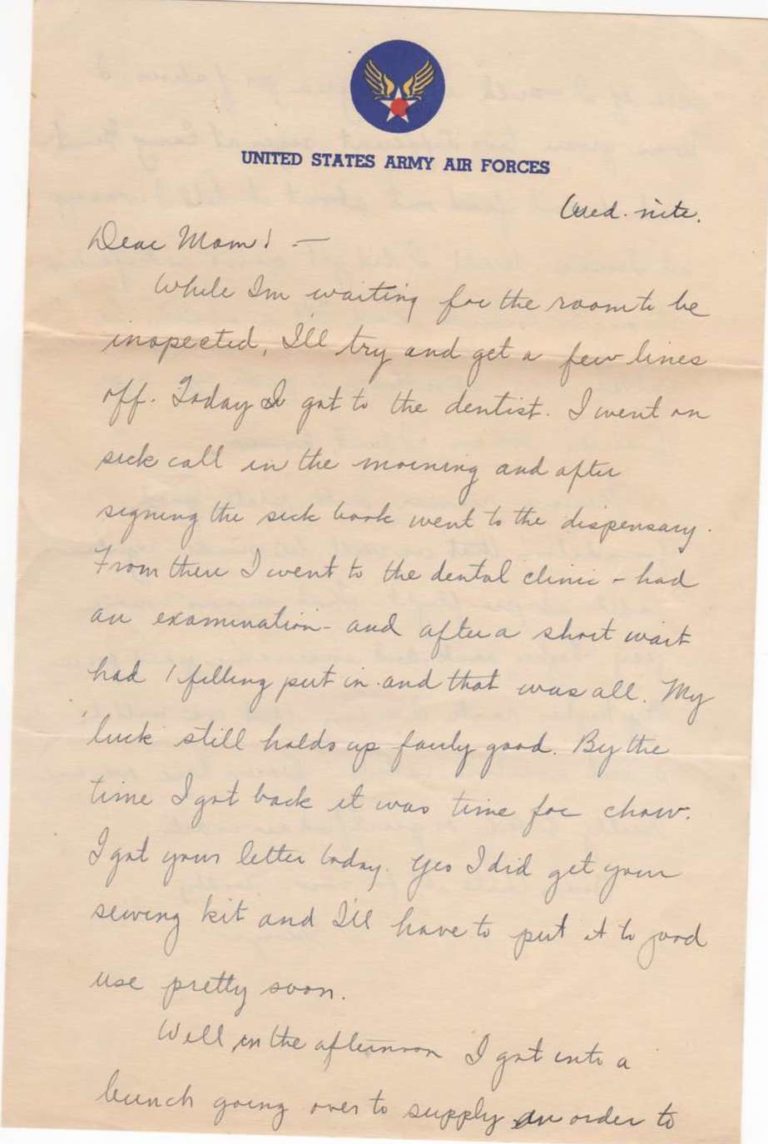 UNITED STATES ARMY AIR FORCES
Wed. nite.
Dear Mom! —
While Im waiting for the room to be
inspected, I'll try and get a few lines
off. Today I got to the dentist. I went on
sick call in the morning and after
signing the sick book went to the dispensary.
From there I went to the dental clinic - had
an examination - and after a short wait
had 1 filling put in and that was all. My
luck still holds up fairly good. By the
time I got back it was time for chow.
I got your letter today. Yes I did get your
sewing kit and I'll have to put it to good
use pretty soon.
Well in the afternoon I got into a
bunch going over to supply in order to